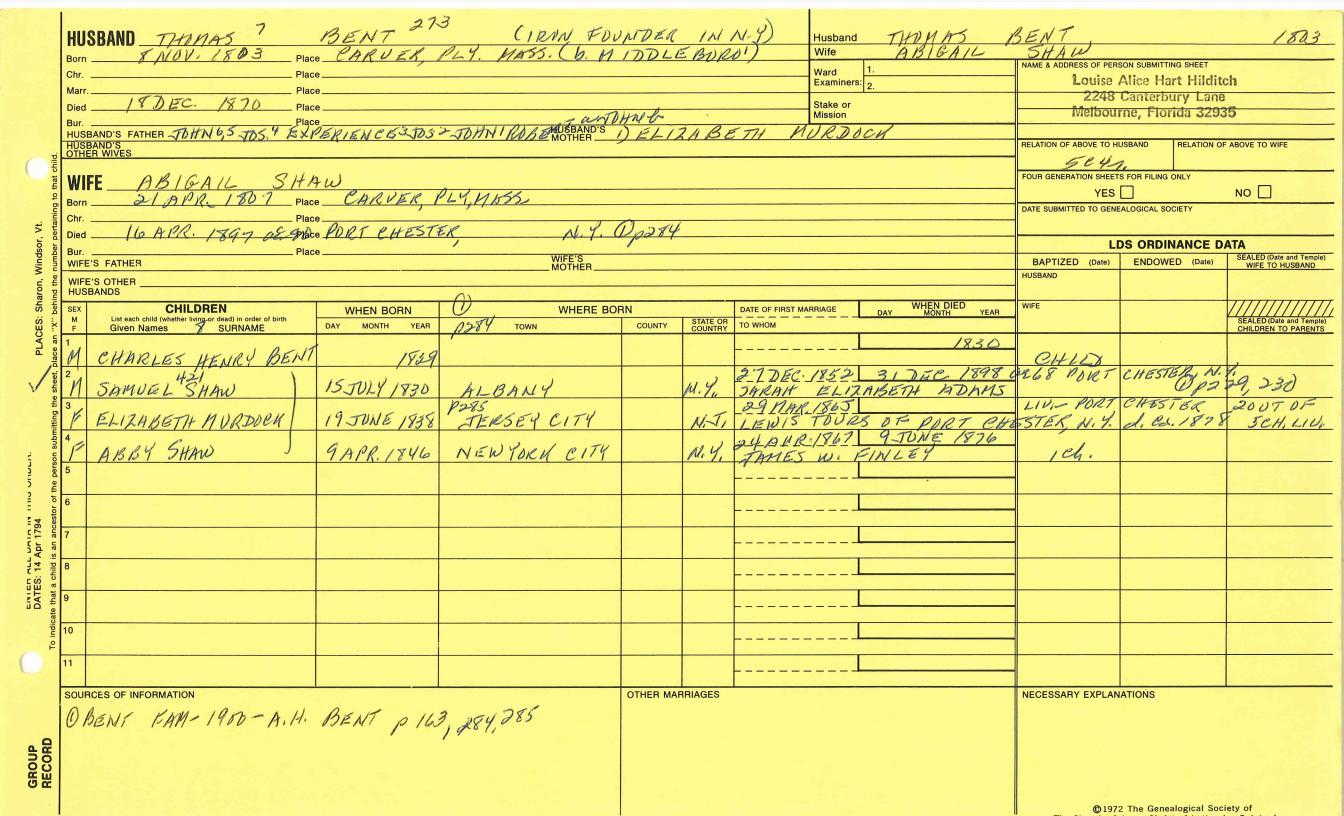 HUSBAND THOMAS 7 BENT 273 (IRON FOUNDER IN N.Y)
Born 8 NOV. 1803 Place CARVER, PLY. MASS. (b. MIDDLEBORO')
Chr. Place
Marr. Place
Died 18 DEC. 1870 Place
Bur. Place
HUSBAND'S FATHER JOHN 6,5 JOS,4 EXPERIENCE 3 JOS 2 JOHN 1 HUSBAND'S MOTHER 1) ELIZABETH MURDOCK
HUSBAND'S OTHER WIVES
Husband THOMAS BENT 1803
Wife ABIGAIL SHAW
Ward Examiners: 1.
2.
Stake or Mission
NAME & ADDRESS OF PERSON SUBMITTING SHEET
Louise Alice Hart Hilditch
2248 Canterbury Lane
Melbourne, Florida 32935
RELATION OF ABOVE TO HUSBAND RELATION OF ABOVE TO WIFE
FOUR GENERATION SHEETS FOR FILING ONLY
YES NO
DATE SUBMITTED TO GENEALOGICAL SOCIETY
WIFE ABIGAIL SHAW
Born 21 APR. 1807 Place CARVER, PLY, MASS
Chr. Place
Died 16 APR. 1897 Place PORT CHESTER, N.Y. ① p284
Bur. Place
WIFE'S FATHER WIFE'S MOTHER
WIFE'S OTHER HUSBANDS
LDS ORDINANCE DATA
BAPTIZED (Date) ENDOWED (Date) SEALED (Date and Temple) WIFE TO HUSBAND
HUSBAND
WIFE
SEALED (Date and Temple) CHILDREN TO PARENTS
SEX M F
CHILDREN
List each child (whether living or dead) in order of birth
Given Names 8 SURNAME
WHEN BORN
DAY MONTH YEAR
① p284
WHERE BORN
TOWN COUNTY STATE OR COUNTRY
DATE OF FIRST MARRIAGE
TO WHOM
WHEN DIED
DAY MONTH YEAR
1 M CHARLES HENRY BENT 1829 1830 CHILD
2 M SAMUEL 421 SHAW 15 JULY 1830 ALBANY N.Y. 27 DEC. 1852 31 DEC. 1898 PORT CHESTER, N.Y.
SARAH ELIZABETH ADAMS ① p229, 230
3 F ELIZABETH MURDOCK 19 JUNE 1838 p285 JERSEY CITY N.J. 29 MAR. 1865 LIV.- PORT CHESTER 2 OUT OF
LEWIS TOURS OF PORT CHESTER, N.Y. d. ca. 1878 5 CH. LIV.
4 F ABBY SHAW 9 APR. 1846 NEW YORK CITY N.Y. 24 APR. 1867 9 JUNE 1876
JAMES W. FINLEY 1 ch.
5
6
7
8
9
10
11
SOURCES OF INFORMATION
① BENT FAM - 1900 - A.H. BENT p 163, 284, 285
OTHER MARRIAGES
NECESSARY EXPLANATIONS
©1972 The Genealogical Society of
PLACES: Sharon, Windsor, Vt.
DATES: 14 Apr 1794
To indicate that a child is an ancestor of the person submitting the sheet, place an "X" behind the number pertaining to that child.
GROUP RECORD